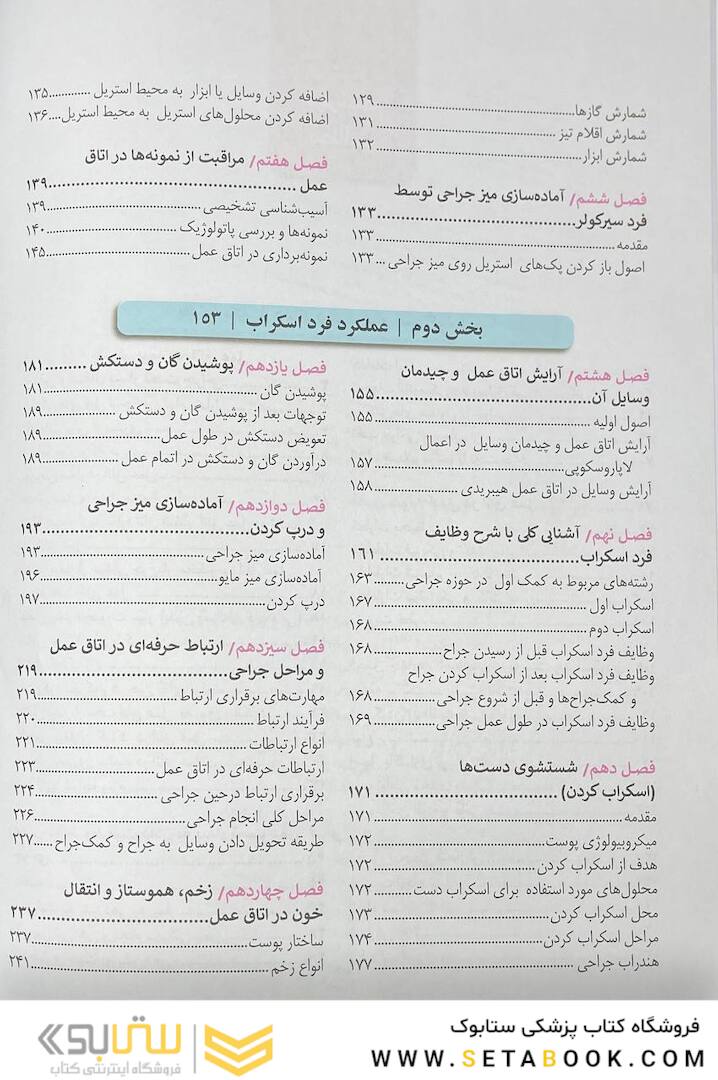 شمارش گازها ۱۲۹
شمارش اقلام تیز ۱۳۱
شمارش ابزار ۱۳۲
فصل ششم/ آماده‌سازی میز جراحی توسط
فرد سیرکولر ۱۳۳
مقدمه ۱۳۳
اصول باز کردن پک‌های استریل روی میز جراحی ... ۱۳۳
اضافه کردن وسایل یا ابزار به محیط استریل ۱۳۵
اضافه کردن محلول‌های استریل به محیط استریل.... ۱۳۶
فصل هفتم/ مراقبت از نمونه‌ها در اتاق
عمل ۱۳۹
آسیب‌شناسی تشخیصی ۱۳۹
نمونه‌ها و بررسی پاتولوژیک ۱۴۰
نمونه‌برداری در اتاق عمل ۱۴۵
بخش دوم | عملکرد فرد اسکراب | ۱۵۳
فصل هشتم/ آرایش اتاق عمل و چیدمان
وسایل آن ۱۵۵
اصول اولیه ۱۵۵
آرایش اتاق عمل و چیدمان وسایل در اعمال
لاپاروسکوپی ۱۵۷
آرایش وسایل در اتاق عمل هیبریدی ۱۵۸
فصل نهم/ آشنایی کلی با شرح وظایف
فرد اسکراب ۱۶۱
رشته‌های مربوط به کمک اول در حوزه جراحی ۱۶۳
اسکراب اول ۱۶۷
اسکراب دوم ۱۶۸
وظایف فرد اسکراب قبل از رسیدن جراح ۱۶۸
وظایف فرد اسکراب بعد از اسکراب کردن جراح
و کمک‌جراح‌ها و قبل از شروع جراحی ۱۶۸
وظایف فرد اسکراب در طول عمل جراحی ۱۶۹
فصل دهم/ شستشوی دست‌ها
(اسکراب کردن) ۱۷۱
مقدمه ۱۷۱
میکروبیولوژی پوست ۱۷۲
هدف از اسکراب کردن ۱۷۲
محلول‌های مورد استفاده برای اسکراب دست ۱۷۲
محل اسکراب کردن ۱۷۳
مراحل اسکراب کردن ۱۷۴
هندراب جراحی ۱۷۷
فصل یازدهم/ پوشیدن گان و دستکش ۱۸۱
پوشیدن گان ۱۸۱
توجهات بعد از پوشیدن گان و دستکش ۱۸۹
تعویض دستکش در طول عمل ۱۸۹
درآوردن گان و دستکش در اتمام عمل ۱۸۹
فصل دوازدهم/ آماده‌سازی میز جراحی
و درپ کردن ۱۹۳
آماده‌سازی میز جراحی ۱۹۳
آماده‌سازی میز مایو ۱۹۶
درپ کردن ۱۹۷
فصل سیزدهم/ ارتباط حرفه‌ای در اتاق عمل
و مراحل جراحی ۲۱۹
مهارت‌های برقراری ارتباط ۲۱۹
فرآیند ارتباط ۲۲۰
انواع ارتباطات ۲۲۱
ارتباطات حرفه‌ای در اتاق عمل ۲۲۳
برقراری ارتباط درحین جراحی ۲۲۴
مراحل کلی انجام جراحی ۲۲۶
طریقه تحویل دادن وسایل به جراح و کمک‌جراح ۲۲۷
فصل چهاردهم/ زخم، هموستاز و انتقال
خون در اتاق عمل ۲۳۷
ساختار پوست ۲۳۷
انواع زخم ۲۴۱
فروشگاه کتاب پزشکی ستابوک
WWW.SETABOOK.COM
ستابوک
فروشگاه اینترنتی کتاب